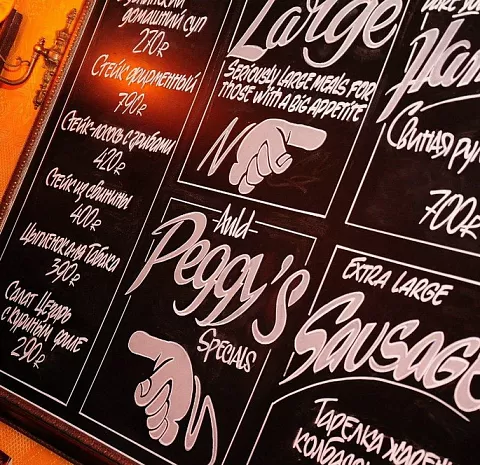 домашний суп
270R
Стейк фирменный
790R
Стейк-лосось с грибами
420R
Стейк из свинины
400R
Цыпленок-ма Табака
390R
Салат Цезарь
с куриным филе
290R
Large
Seriously large meals for
those with a big appetite
Auld
Peggy's
Specials
700R
Extra Large
Sausage
Тарелка